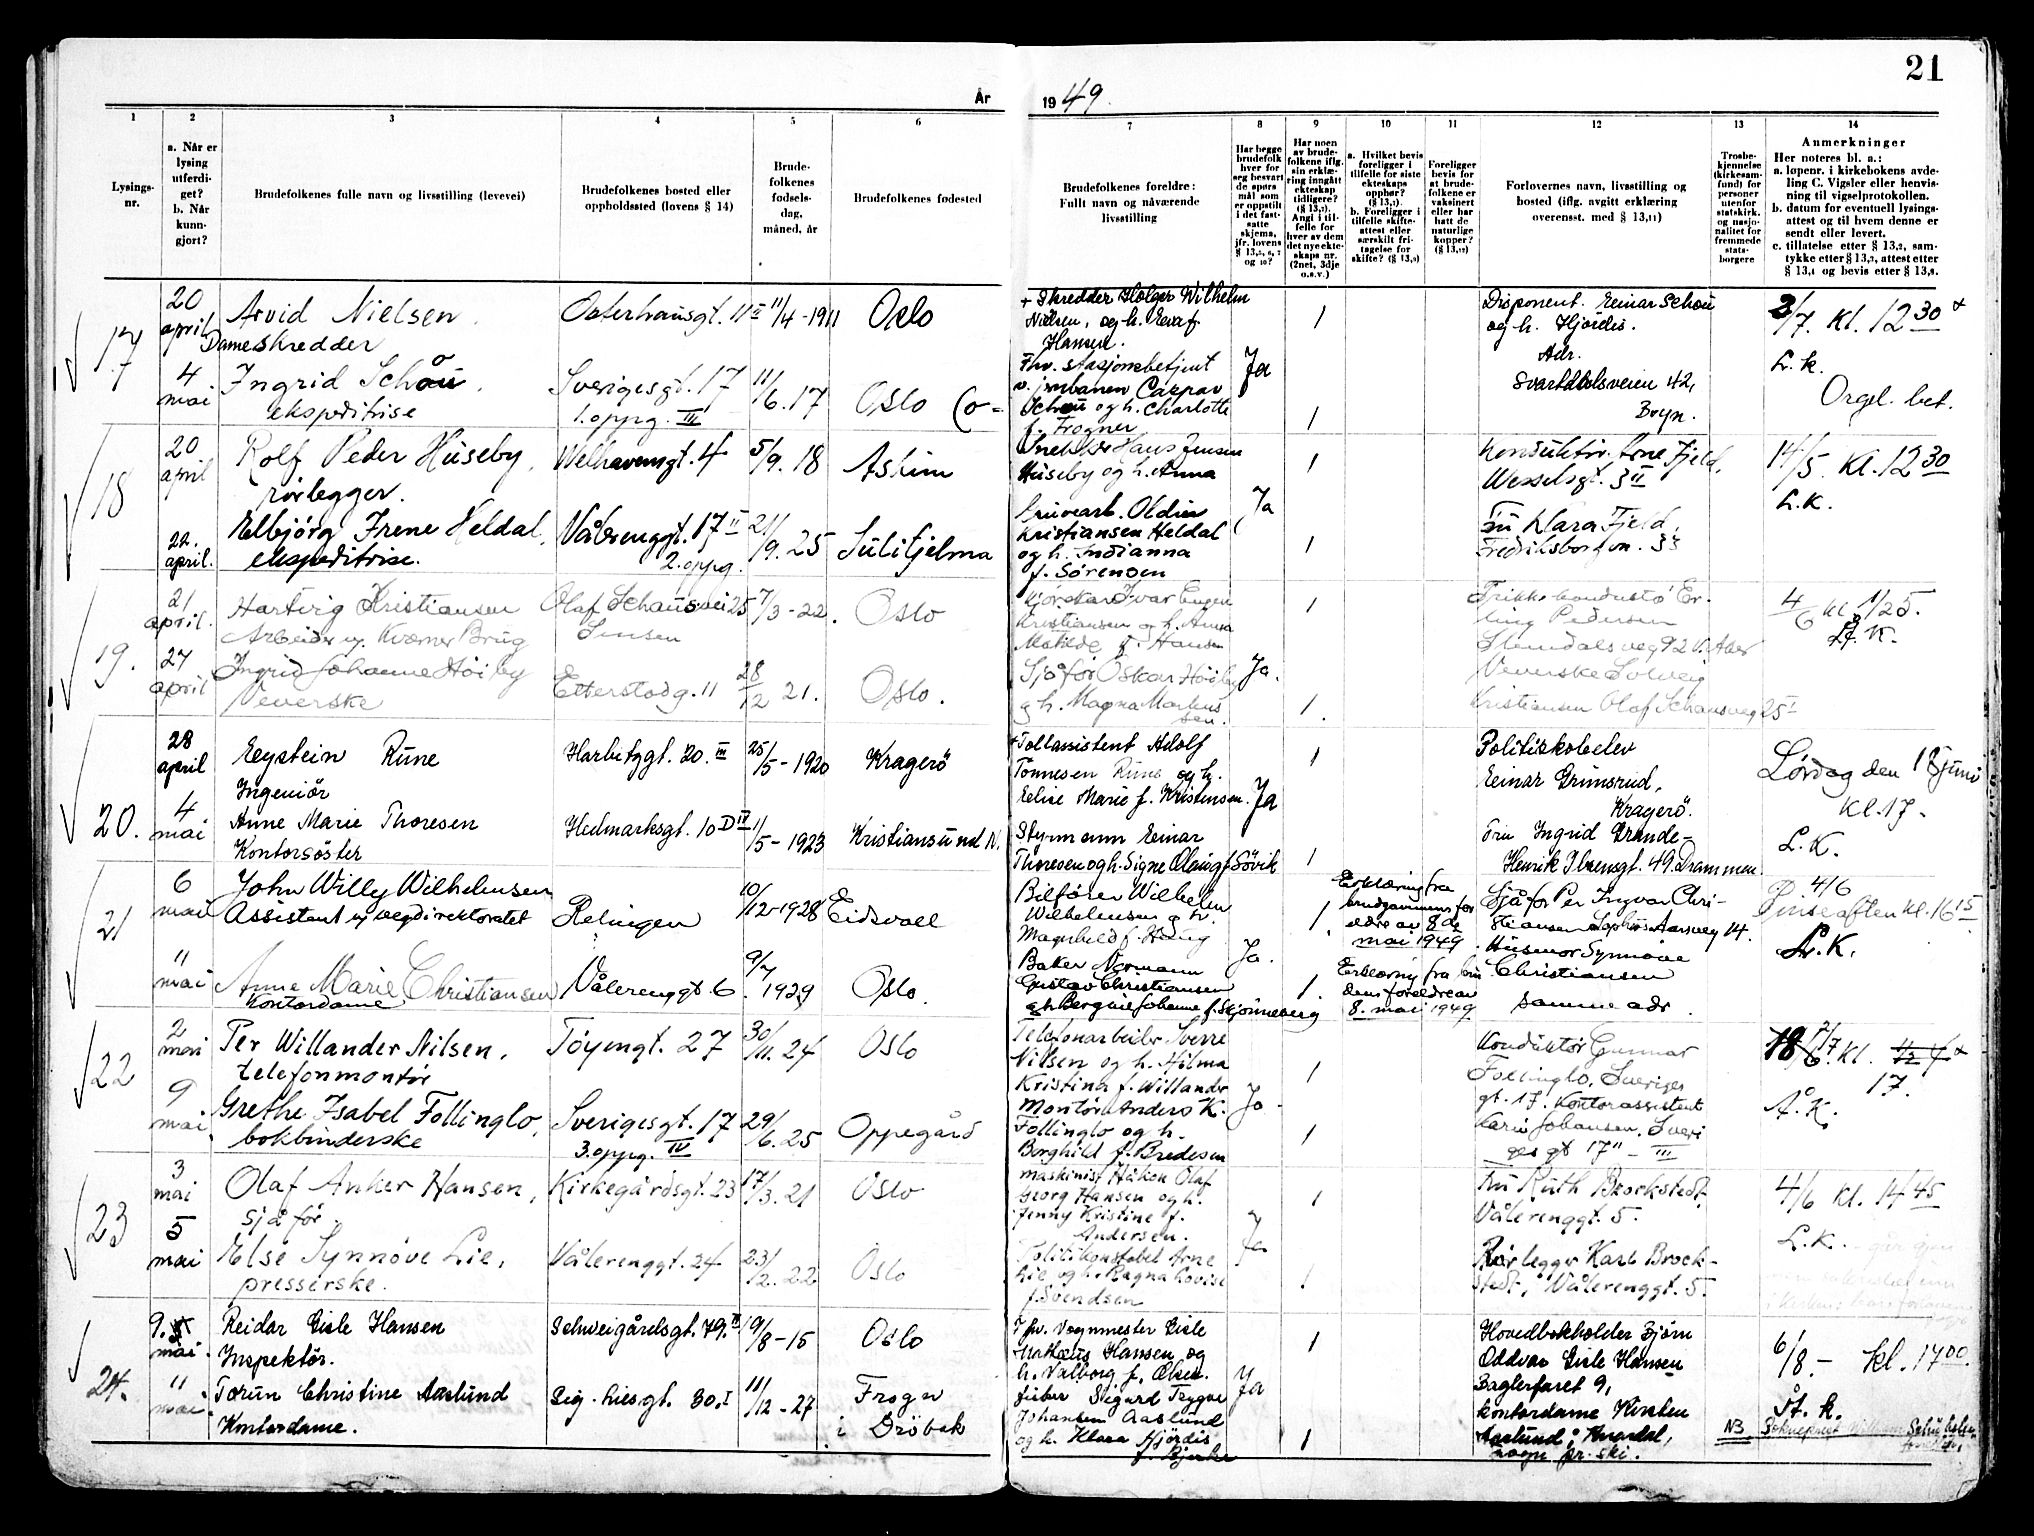 21
År
19 49.
1
2
3
4
5
6
7
8
9
10
11
12
13
14
Lysings-
nr.
a. Når er
lysing
utferdi-
get?
b. Når
kunn-
gjort?
Brudefolkenes fulle navn og livsstilling (levevei)
Brudefolkenes bosted eller
oppholdssted (lovens § 14)
Brude-
folkenes
fødsels-
dag,
måned, år
Brudefolkenes fødested
Brudefolkenes foreldre:
Fullt navn og nåværende
livsstilling
Har begge
brudefolk
hver for
seg besvart
de spørs
mål som
er oppstilt
i det fast-
satte
skjema,
jfr. lovens
Har noen
av brude-
folkene iflg.
sin erklæ-
ring inngått
ekteskap
tidligere?
Angi i til-
felle for
hver av dem
det nye ekte-
skaps nr.
(2net, 3dje
o.s.v.)
a. Hvilket bevis
foreligger i
tilfelle for siste
ekteskaps
opphør?
b. Foreligger i
tilfelle skifte-
attest eller
særskilt fri-
tagelse for
Foreligger
bevis for
at brude-
folkene er
vaksinert
eller har
hatt de
naturlige
kopper?
Forlovernes navn, livsstilling og
bosted (iflg. avgitt erklæring
overensst. med § 13,11)
Trosbe-
kjennelse
(kirkesam-
fund) for
personer
utenfor
statskirk.
og nasjo-
nalitet for
fremmede
stats-
borgere
Anmerkninger
Her noteres bl. a.:
a. løpenr. i kirkebokens avde-
ling C. Vigsler eller henvis-
ning til vigselprotokollen.
b. datum for eventuell lysings-
attest og til hvem denne er
sendt eller levert.
c. tillatelse etter § 13,2, sam-
tykke etter § 13,3, attest etter
17
20
april
4
mai
Arvid Nielsen
Dameskredder
Ingrid Schou
ekspeditrise
Osterhausgt. 11 II
Sverigesgt. 17
1. oppg. III
11/4 - 1911
11/6. 17
Oslo
Oslo
+ Skredder Holger Wilhelm
Nielsen, og h.
Hansen.
Fhv. stasjonsbetjent
v. jernbanen Caspar
Schou og h. Charlotte
f. Frogner
Ja
1
1
Disponent. Einar Schou
og h. Hjördis.
Adr.
Svartdalsveien 42,
Bryn.
2/7. Kl. 12 30
L.k.
Orgel. bet.
18
20
april
22.
april.
Rolf Peder Huseby,
rörlegger.
Elbjörg Irene Heldal,
ekspeditrise.
Welhavensgt. 4
Vålerenggt. 17 II
2. oppg.
5/9. 18
21/9. 25
Askim
Sulitjelma
Hans Jensen
Huseby og h. Anna
Gruvearb. Oldin
Kristiansen Heldal
og h. Indianna
f. Sörensen
Ja
1
1
Konduktör. Arne Fjeld,
Wesselsgt. 3 II
Fru Klara Fjeld,
14/5. Kl. 12 30
L.k.
19.
21
april.
27
april
Hartvig Kristiansen
Arbeider v. Kværner Brug
Ingrid Johanne Höiby
Veverske
Olaf Schousvei 25
Sinsen
Etterstadg. 11
7/3 - 22.
28/12 21.
Oslo
Oslo.
Ivar Eugen
Kristiansen og h. Anna
Matilde f. Hansen
Sjåför Oskar Höiby
g h. Magna Martins
sen.
Ja.
1
1.
Trikkekonduktö Er-
ling Pedersen
Veverske Solveig
Kristiansen Olaf Schousveg 25 I
4/6
20.
28
april
4
mai
Eystein Rune
Ingeniör
Anne Marie Thoresen
Kontorsöster
Harbitzgt. 20. III
Hedmarksgt. 10 D IV
25/5 - 1920
1/5 - 1923
Kragerö
Kristiansund N.
Tollassistent Adolf
Tönnesen Rune og h.
Elise Marie f. Kristensen.
Styrmann Einar
Thoresen og h. Signe f. Sövik
Ja
1
1
Politiskoleelev
Einar Grimsrud,
Kragerö.
Fru Ingrid
Henrik Ibsensgt. 49. Drammen.
Lördag den 18 Juni
Kl. 17.
L.K.
21
6
mai
11
mai
John Willy Wilhelmsen
Assistent v. vegdirektoratet
Anne Marie Christiansen
Kontordame
Relingen
Vålerenggt 6
10/12-1928
9/7 1929
Eidsvoll
Oslo.
Bilförer Wilhelm
Wilhelmsen g h.
Magnhild f. Haug
Baker Normann
Gustav Christiansen
gh Bergine Johanne f. Skjönneberg
Ja.
1.
1.
Erklæring fra
brudgommens for
eldre av 8 de
mai 1949.
Erklæring fra bru
dens foreldre av
8. mai 1949
Sjåför Per Ingvar Chri-
stiansen Sophus Aarsveg 14.
Husmor Synnöve
Christiansen
samme adr
4/6
Pinseaften Kl. 16 15
22
2
mai
9
mai
Per Willander Nilsen,
telefonmontör
Grethe Isabel Follinglo,
bokbinderske
Töyengt. 27
Sverigesgt. 17
3. oppg. IV
30/11. 24
29/6. 25
Oslo
Oppegård
Telefonarbeider Sverre
Nilsen og h. Hilma
Kristina f. Willander
Montör Anders K.
Follinglo og h.
Borghild f. Bredesen
1
1
Konduktör Gunnar
Follinglo, Sveriges
gt. 17. Kontorassistent
Karin Johansen, Sveri
ges gt 17" - III
17.
Å.K.
23
3
mai
5
mai
Olaf Anker Hansen,
sjåför
Else Synnöve Lie,
presserske.
Kirkegårdsgt. 23
Vålerenggt. 24
17/3. 21
23/2. 22
Oslo
Oslo
maskinist Håkon Olaf
Georg Hansen og h.
Jenny Kristine f.
Andersen.
Politikonstabel Arne
Lie og h. Ragna Lovise
f. Svendsen
Ja
1
1
Fru Ruth Brockstedt,
Vålerenggt. 5.
Rörlegger Karl Brock-
stedt, Vålerenggt. 5.
4/6 Kl. 14 45
L.k.
24.
9.
mai.
11
mai
Reidar Eisle Hansen
Inspektör.
Torun Christine Aaslund
Kontordame.
Schweigårdsgt. 79.
Sig. hiesgt. 30. I
19/8 - 15
11/12 - 27
Oslo
Frogn
i Dröbak
Fhv. Vognmester Eisle
Hansen og
h. Valborg f. Olsen.
Sigurd Trygve
Johansen Aaslund
og h. Klara Hjördis
f. Bjerke
Ja
1
1
Hovedbokholder Björn
Oddvar Eisle Hansen
Baglerfaret 9,
kontordame Kirsten
Aaslund,
6/8 - kl. 17 00.
St. k.
NB